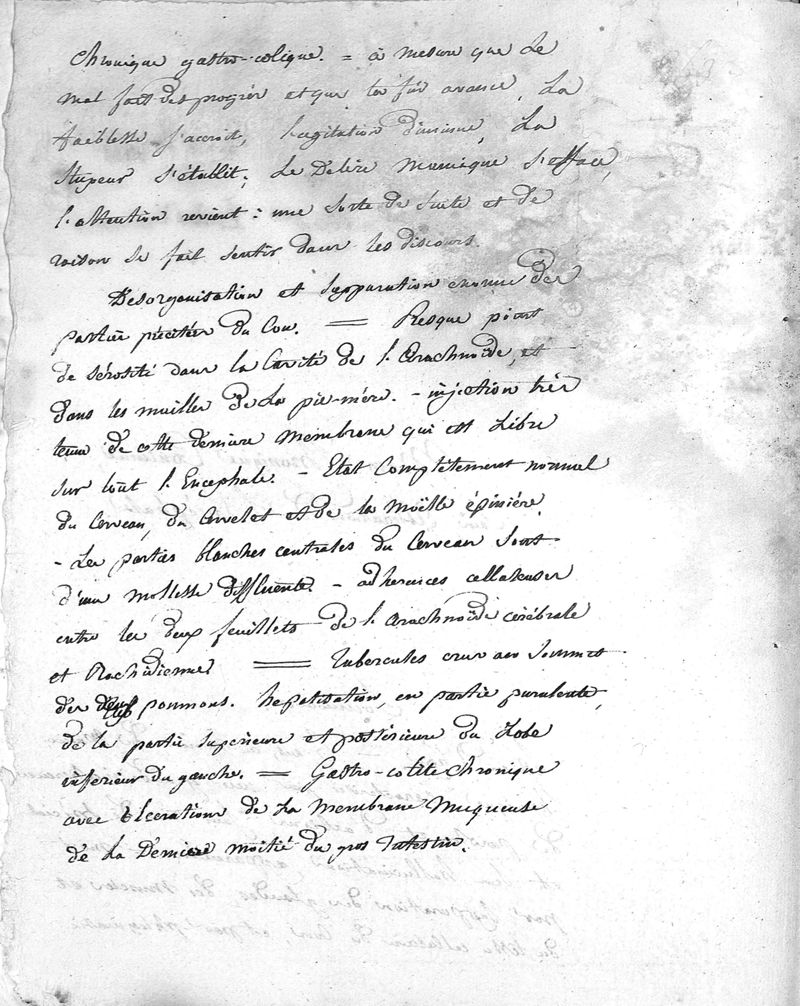 Chronique gastro-colique. = à mesure que Le
mal fait des progrès et que la fin avance, La
faiblesse s'accroit, l'agitation diminue, La
stupeur s'établit; Le Delire Maniaque s'efface,
l'attention revient: une sorte de suite et de
raison se fait sentir dans les discours.
Desorganisation et suppuration enorme des
parties précitées du Cou. = Presque point
de sérosité dans la Cavité de l'Arachnoïde, et
dans les mailles de La pie-mère. - injection très
tenue de cette derniere Membrane qui est Libre
sur tout l'Encephale. - Etat Complètement normal
du Cerveau, du Cervelet et de la Moëlle épinière.
- Les parties blanches centrales du Cerveau sont
d'une Mollesse diffluente. - adherences celluleuses
entre les deux feuillets de l'arachnoïde cérébrale
et Rachidienne = Tubercules crus au Sommet
des deux poumons. hepatisation, en partie purulente,
de la partie superieure et postérieure du Lobe
inferieur du gauche. = Gastro-colite Chronique
avec Ulcerations de La Membrane Muqueuse
de La Derniere moitié du gros Intestin.